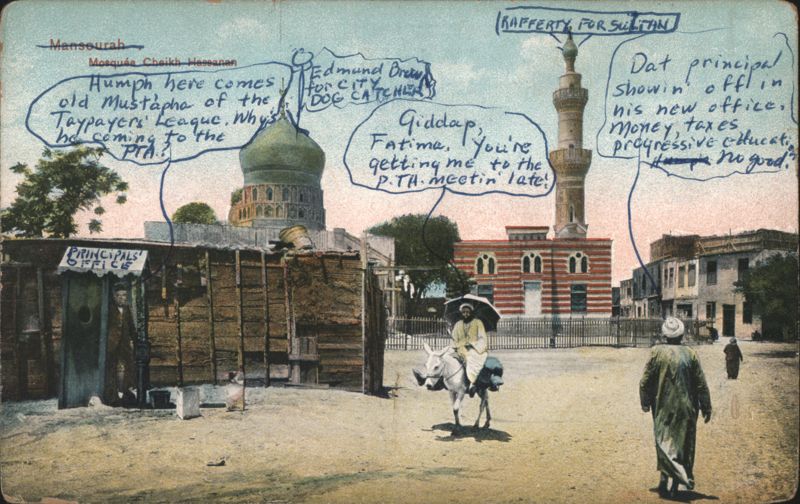 Mansourah
Mosquée Cheikh Hassanan
RAFFERTY FOR SULTAN
Humph, here comes
old Mustapha of the
Taypayers' League. Why's
he coming to the
PTA?
Edmund
for CITY
DOG CATCHER
Giddap,
Fatima, You're
getting me to the
P.TA. meetin' late!
Dat principal
showin' off in
his new office.
Money, taxes
progressive educati
No good!
PRINCIPALS'
OFFICE